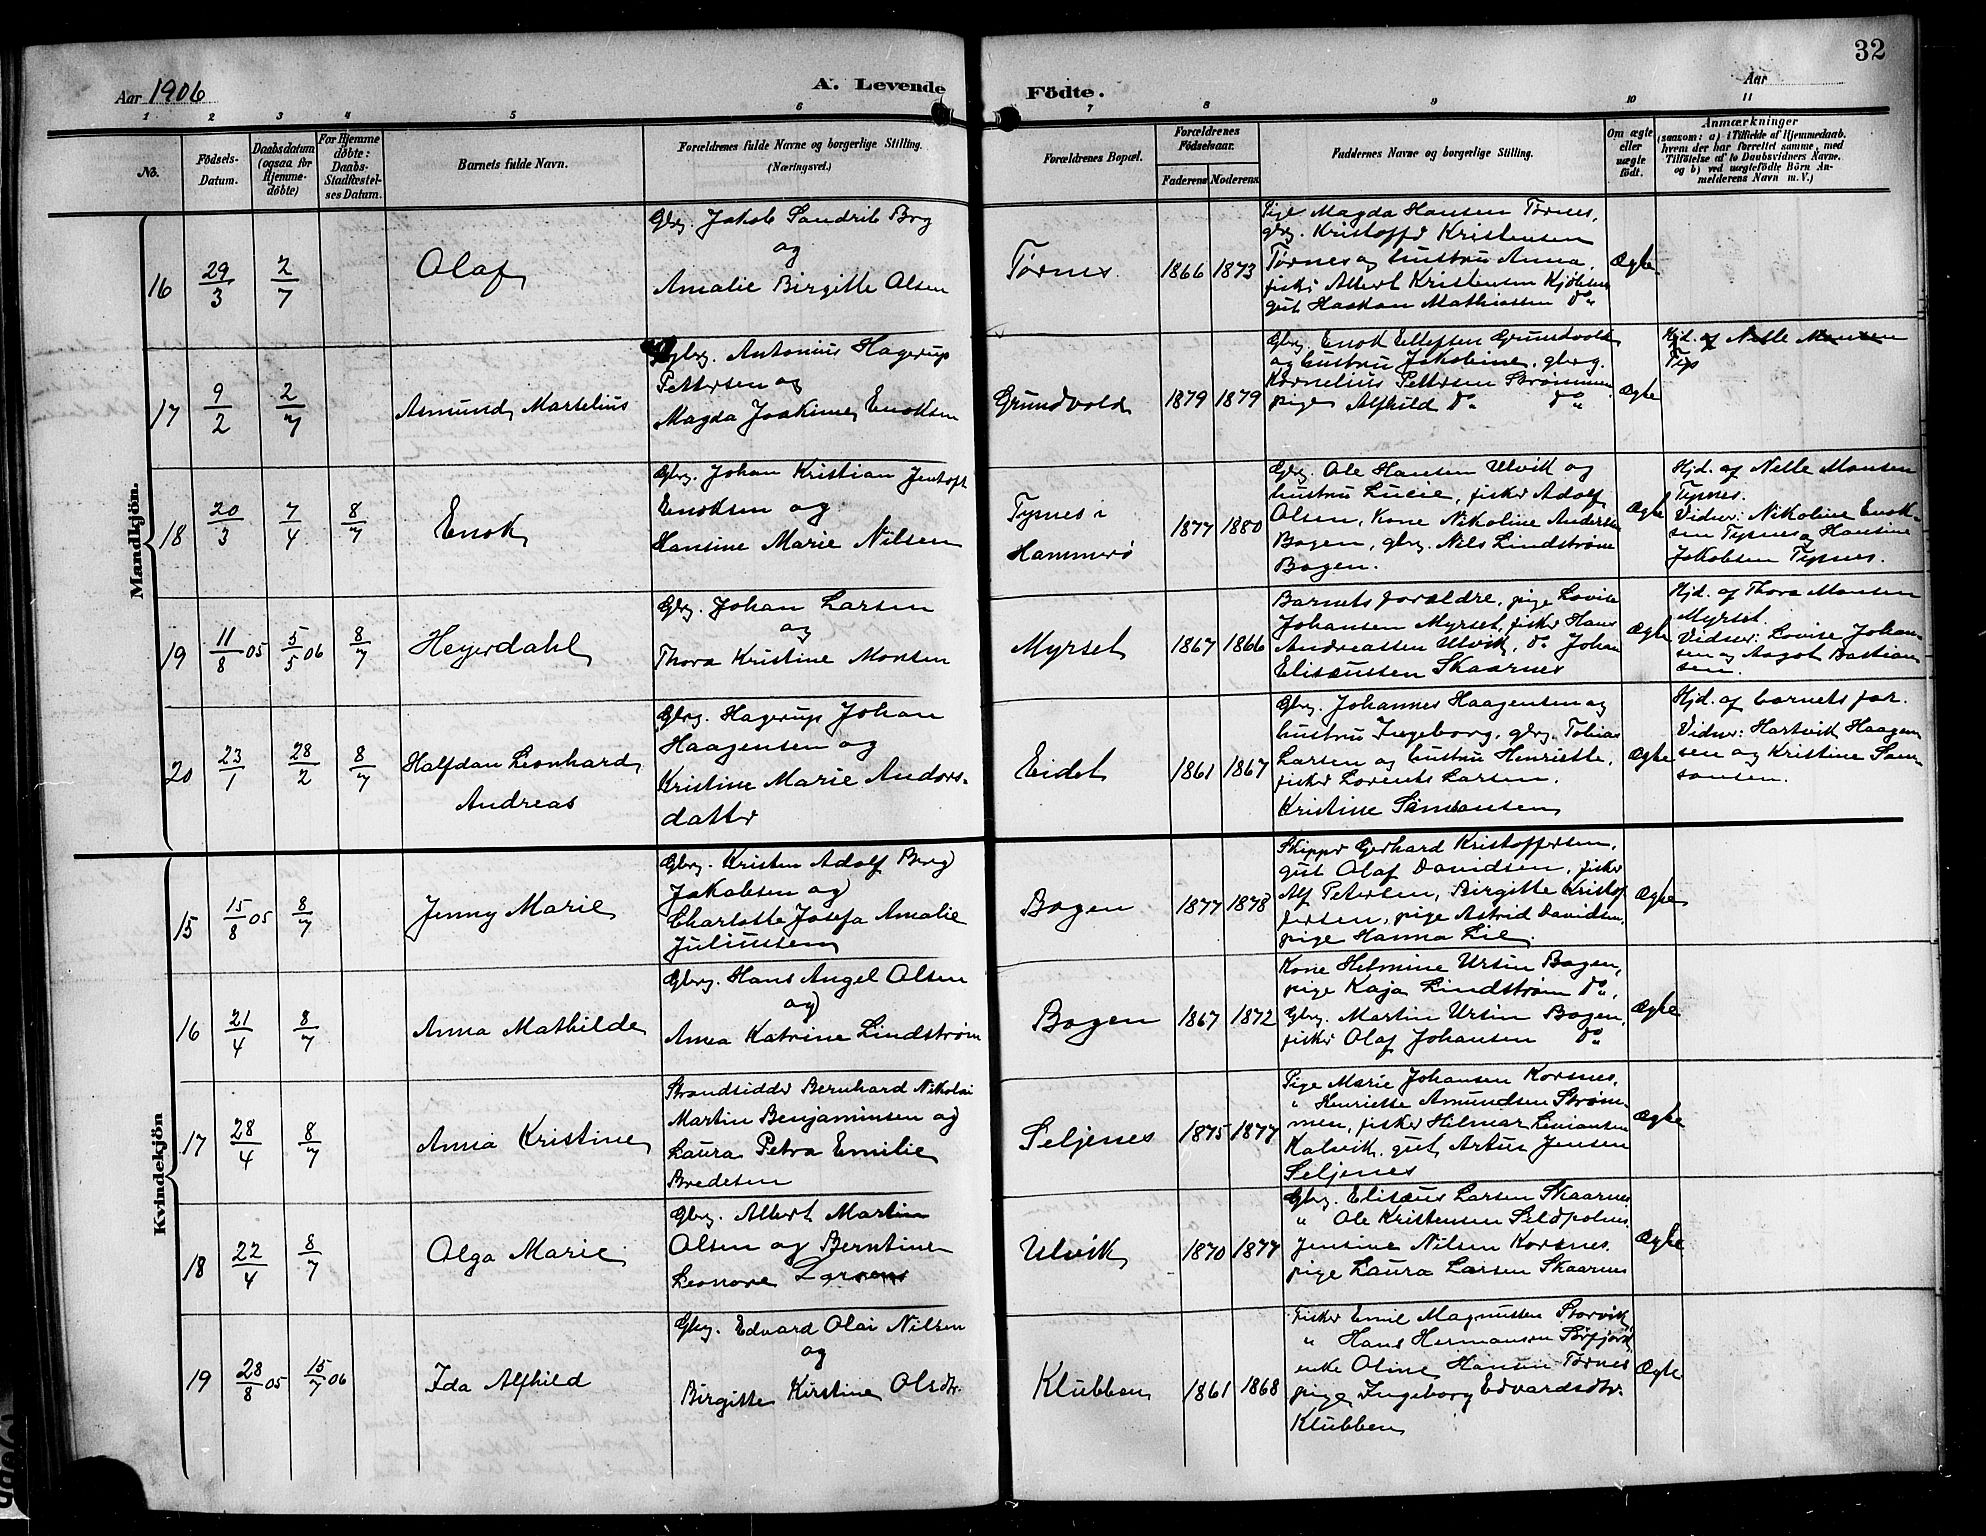 32
Aar 1906
A. Levende Födte.
Aar
1 2 3 4 5 6 7 8 9 10 11
No.
Födsels-Datum.
Daabsdatum (ogsaa for Hjemme-döbte)
For Hjemme döbte: Daabs-Stadfæstel-ses Datum.
Barnets fulde Navn.
Forældrenes fulde Navne og borgerlige Stilling.
(Næringsvei.)
Forældrenes Bopæl.
Forældrenes Födselsaar.
Faderens Moderens
Faddernes Navne og borgerlige Stilling.
Om ægte eller uægte födt.
Anmærkninger
(saasom: a) i Tilfælde af Hjemmedaab.
hvem der har forrettet samme, med
Tilföielse af to Daabsvidners Navne.
og b) ved uægtefödte Börn An-
melderens Navn m. V.)
Mandkjön.
16 29/3 2/7 Olaf
Gbrg. Jakob Sandrib Brg
og
Amalie Birgitte Olsen
Tørnes. 1866 1873
Pige Magda Hansen Tørnes,
gbrg. Kristoffer Kristensen
Tørnes og hustru Anna,
fisker Albert Kristensen Kjöbsen
gut Haakon Mathiassen do
Ægte
17 9/2 2/7 Asmund Martelius
Gbrg. Antonius Hagerup
Pettersen og
Magda Joakime Enoksen
Grundvold 1879 1879
Gbrg. Enok Ellefsen Grundvold
og hustru Jakobine, gbrg.
Kornelius Pettersen Strømmen
pige Alfhild do do
Ægte
Hjd. af Nelle Monsen
Typ
18 20/3 7/4 8/7 Enok
Gbrg. Johan Kristian Jentoft
Enoksen og
Hansine Marie Nilsen
Tysnes i
Hammerø
1877 1880
Gbrg. Ole Hansen Ulvik og
hustru Lucie, fisker Adolf
Olsen, Kone Nikoline Andersen
Bogen, gbrg. Nils Lindstrøm
Bogen.
Ægte
Hjd. af Nelle Monsen
Tysnes.
Vidner: Nikoline Enok-
sen Tysnes og Hansine
Jakobsen Tysnes.
19 11/8 05 5/5 06 8/7 Heyerdahl
Gbrg. Johan Larsen
og
Thora Kristine Monsen
Myrset 1867 1866
Barnets forældre, pige Lovise
Johansen Myrset, fisker Hans
Andreassen Ulvik, do Johan
Elisæussen Skaarnes
Ægte
Hjd. af Thora Monsen
Myrset.
Vidner: Lovise Johan-
sen og Aagot Bastian
sen.
20 23/1 28/2 8/7 Halfdan Leonhard
Andreas
Gbrg. Hagerup Johan
Haagensen og
Kristine Marie Anders-
datter
Eidet 1861 1867
Gbrg. Johannes Haagensen og
hustru Ingeborg, gbrg. Tobias
Larsen og hustru Henriette,
fisker Lorents Larsen.
Kristine Simonsen
Ægte
Hjd. af barnets far.
Vidner: Hartvik Haagen
sen og Kristine Sam
sonsen.
Kvindekjön
15 15/8 05 8/7 Jenny Marie
Gbrg. Kristen Adolf Berg
Jakobsen og
Charlotte Josefa Amalie
Juliussen
Bogen 1877 1878
Skipper Gerhard Kristoffersen,
gut Olaf Davidsen, fisker
Alf Petersen, Birgitte Kristof
fersen, pige Astrid Davidsen,
pige Hanna Lie.
Ægte
16 21/4 8/7 Anna Mathilde
Gbrg. Hans Angel Olsen
og
Anna Katrine Lindstrøm
Bogen 1867 1872
Kone Helmine Ursin Bogen,
pige Kaja Lindstrøm do,
Gbrg. Martin Ursin Bogen,
fisker Olaf Johansen do
Ægte
17 28/4 8/7 Anna Kristine
Strandsidder Bernhard Nikolai
Martin Benjaminsen og
Laura Petra Emilie
Bredesen
Seljenes 1875 1877
Pige Marie Johansen Korsnes,
" Henriette Amundsen Strøm-
men, fisker Hilmar Liviansen
Kalvik, gut Artur Jensen
Seljenes
Ægte
18 22/4 8/7 Olga Marie
Gbrg. Albert Martin
Olsen og Berntine
Leonore Larsens
Ulvik 1870 1877
Gbrg. Elisæus Larsen Skaarnes
" Ole Kristensen
Jensine Nilsen Korsnes.
pige Laura Larsen Skaarnes
Ægte
19 28/8 05 15/7 06 Ida Alfhild
Gbrg. Edvard Olai Nilsen
og
Birgitte Kirstine Olsdtr.
Klubben 1861 1868
Fisker Emil Magnussen Storvik,
" Hans Hermansen Sørfjord
enke Oline Hansen Tørnes
pige Ingeborg Edvardsdtr.
Klubben
Ægte